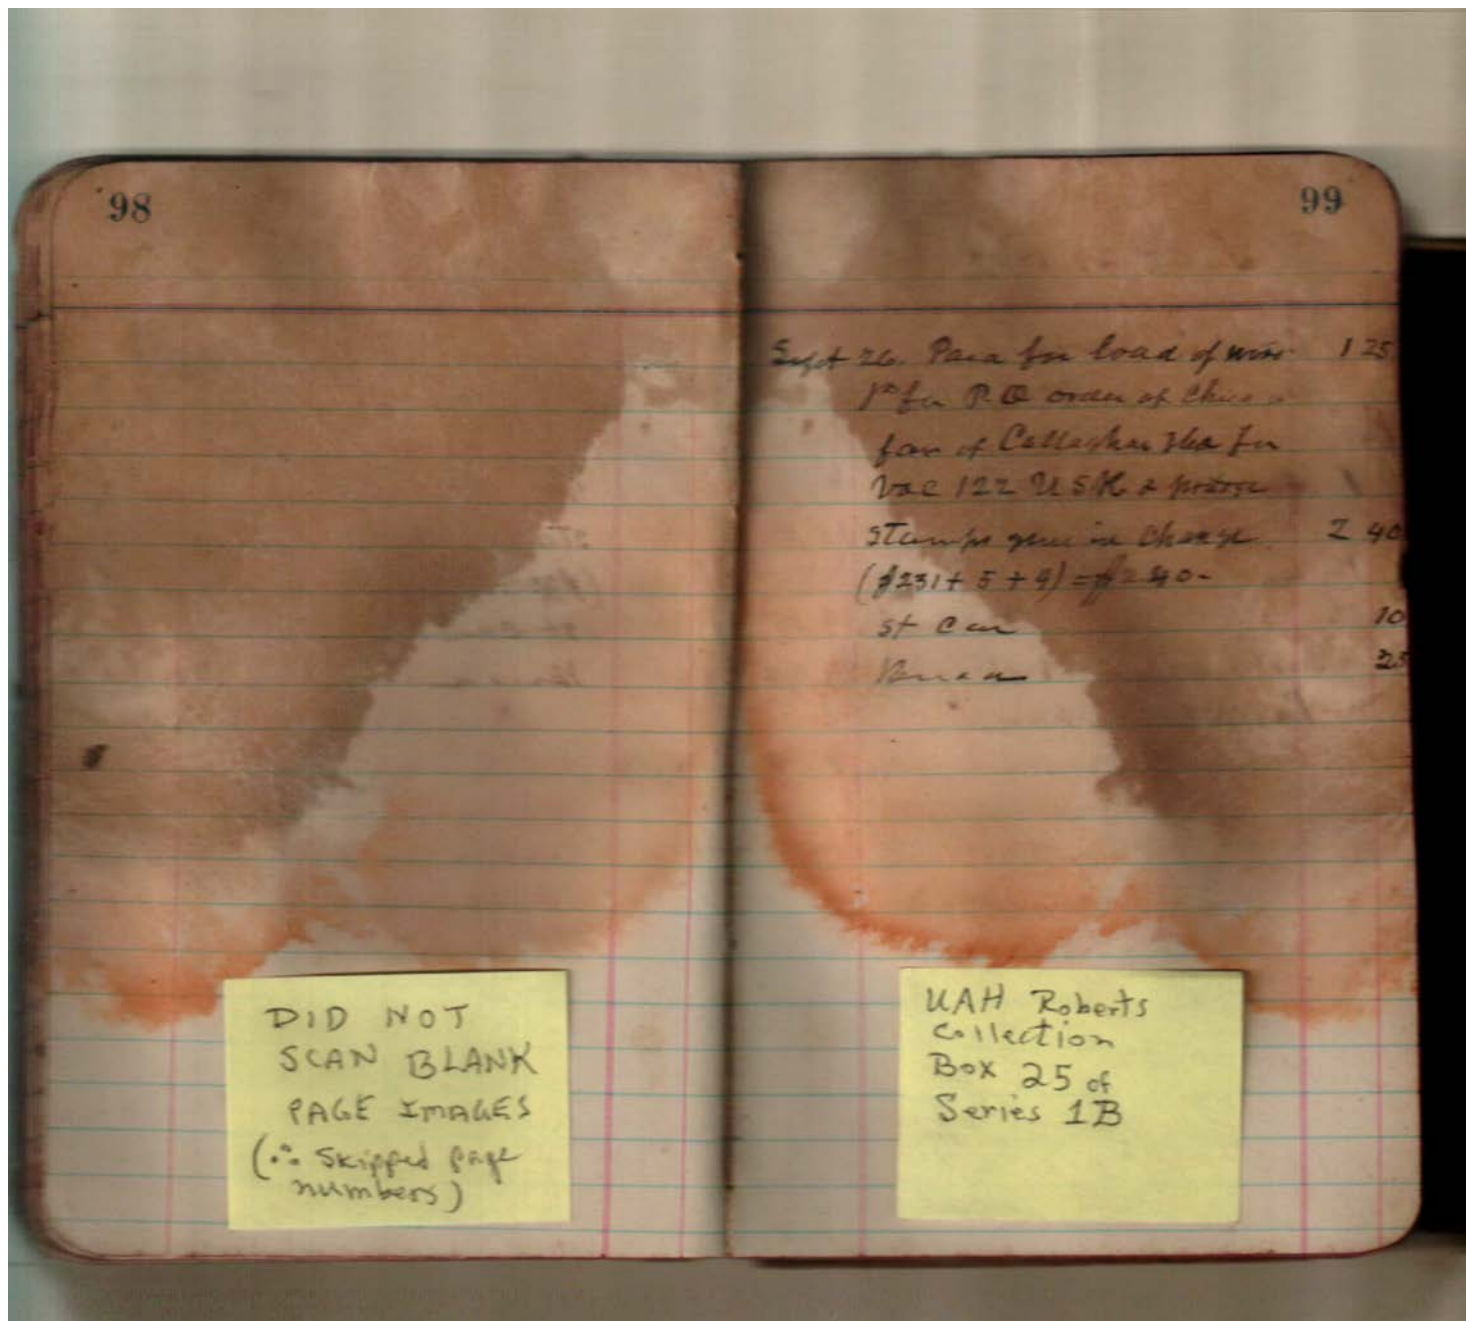 98
DID NOT
SCAN BLANK
PAGE IMAGES
(∴ Skipped page
numbers)
99
Sept 26. Paid for load of 1 25
for P.O order of
of Callaghan &
Vol 122 U S R &
stamps given in change. 2 40
($231 + 5 + 4) = $240-
st car 10
25
UAH Roberts
Collection
Box 25 of
Series 1B